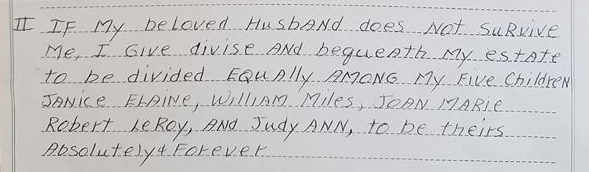 II IF My beloved HusbANd does Not SuRvive
Me, I Give divise ANd bequeath My estAte
to be divided EQuAlly AMONG My Five ChildreN
JANice ELAiNe, WilliAM Miles, JOAN MARie
Robert LeRoy, ANd Judy ANN, to be theirs
Absolutely & Forever